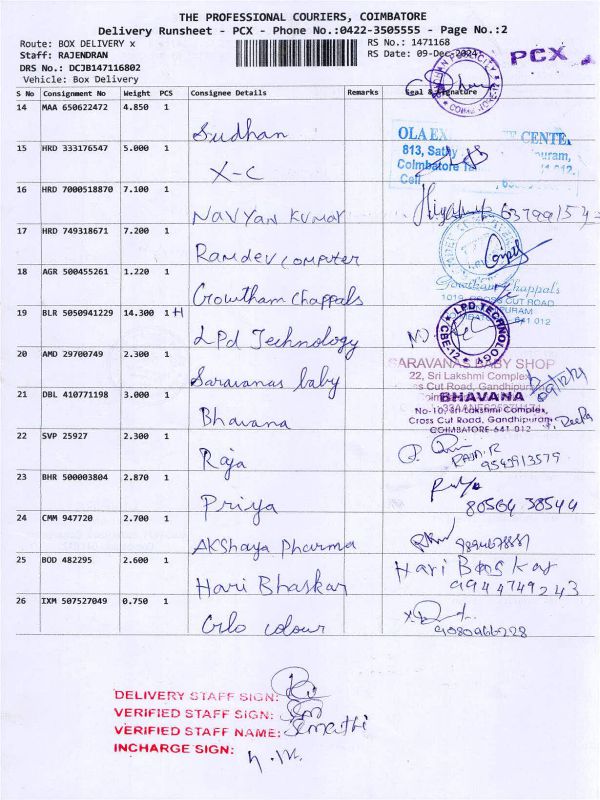 THE PROFESSIONAL COURIERS, COIMBATORE
Delivery Runsheet - PCX - Phone No.:0422-3505555 - Page No.:2
Route: BOX DELIVERY x
RS No.: 1471168
Staff: RAJENDRAN
RS Date: 09-Dec-2024
PCX
DRS No.: DCJB147116802
Vehicle: Box Delivery
S No Consignment No Weight PCS Consignee Details Remarks Seal & Signature
14 MAA 650622472 4.850 1 Sudhan
15 HRD 333176547 5.000 1 X-C
OLA CENTE
813, Sathy puram,
Coimbatore
Cell
16 HRD 7000518870 7.100 1 Navyan Kumar
17 HRD 749318671 7.200 1 Ramdev Computer
18 AGR 500455261 1.220 1 Gowtham Chappals
Gowtham Chappals
CROSS CUT ROAD
641 012
19 BLR 5050941229 14.300 1 H LPd Technology
LPD TECHNOLOGY
CBE-12
20 AMD 29700749 2.300 1 Saravanas baby
SARAVANAS BABY SHOP
22, Sri Lakshmi Complex,
Cut Road, Gandhipuram
09/12/24
21 DBL 410771198 3.000 1 Bhavana
BHAVANA
No-10, Sri Lakshmi Complex,
Cross Cut Road, Gandhipuram
COIMBATORE-641 012
22 SVP 25927 2.300 1 Raja
23 BHR 500003804 2.870 1 Priya
80564 38544
24 CMM 947720 2.700 1 AKShaya Pharma
25 BOD 482295 2.600 1 Hari Bhaskar
Hari Baskar
9944749243
26 IXM 507527049 0.750 1 Glo colour
9080966228
DELIVERY STAFF SIGN:
VERIFIED STAFF SIGN:
VERIFIED STAFF NAME: Sumathi
INCHARGE SIGN: